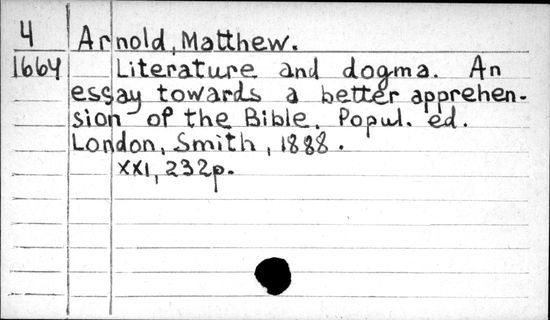 4 Arnold, Matthew.
1664 Literature and dogma. An
essay towards a better apprehen-
sion of the Bible. Popul. ed.
London, Smith, 1888.
XXI, 232p.